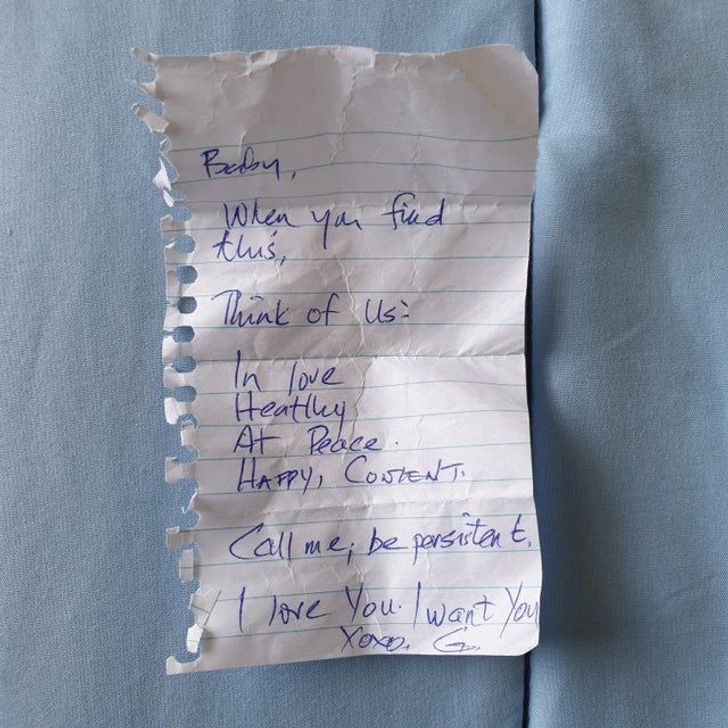 Baby,
When you find
this,
Think of Us:
In love
Heatlhy
At Peace.
HAPPY, CONTENT.
Call me; be persistent.
I love You. I want You
Xoxo. G.